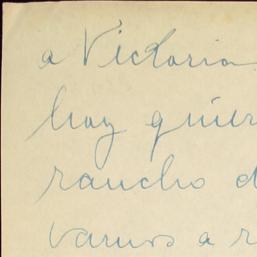 a Victoria
hay quier
rancho d
vamos a r